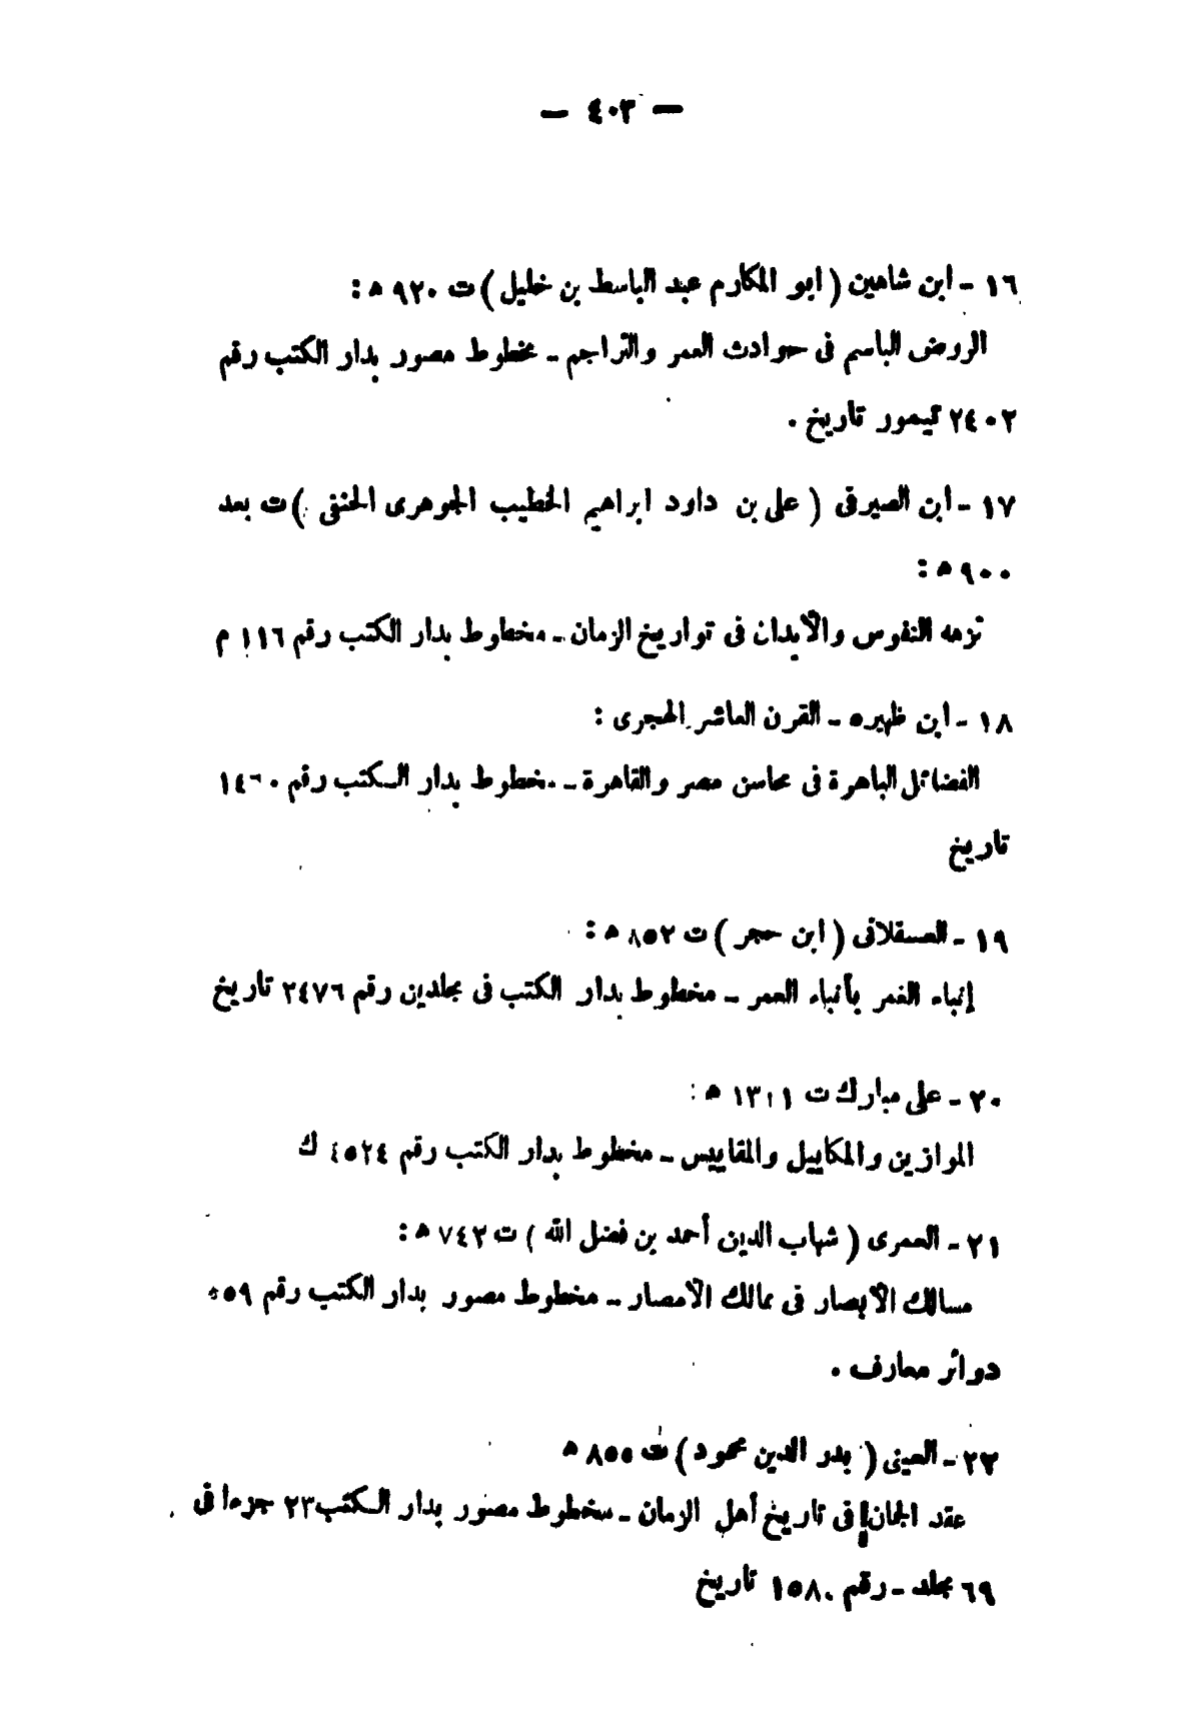 — ٤٠٣ —
١٦ - ابن شاهين ( ابو المكارم عبد الباسط بن خليل ) ت ٩٢٠ ھ :
الروض الباسم فى حوادث العمر والتراجم - مخطوط مصور بدار الكتب رقم
٢٤٠٢ تيمور تاريخ .
١٧ - ابن الصيرفى ( على بن داود ابراهيم الخطيب الجوهرى الحنفى ) ت بعد
٩٠٠ ھ :
نزهه النفوس والأبدان فى تواريخ الزمان - مخطوط بدار الكتب رقم ١١٦ م
١٨ - ابن ظهيره - القرن العاشر الهجرى :
الفضائل الباهرة فى محاسن مصر والقاهرة - مخطوط بدار الكتب رقم
تاريخ
١٩ - العسقلانى ( ابن حجر ) ت ٨٥٢ ھ :
إنباء الغمر بأنباء العمر - مخطوط بدار الكتب فى مجلدين رقم ٢٤٧٦ تاريخ
٢٠ - على مبارك ت ١٣١١ ھ :
الموازين والمكاييل والمقاييس - مخطوط بدار الكتب رقم ٤٥٢٤ ك
٢١ - العمرى ( شهاب الدين أحمد بن فضل الله ) ت ٧٤٢ ھ :
مسالك الأبصار فى ممالك الأمصار - مخطوط مصور بدار الكتب رقم
دوائر معارف .
٢٢ - العينى ( بدر الدين محمود ) ت ٨٥٥ ھ
عقد الجمان فى تاريخ أهل الزمان - مخطوط مصور بدار الكتب ٢٣ جزءا فى
٦٩ مجلد - رقم ١٥٨٠ تاريخ